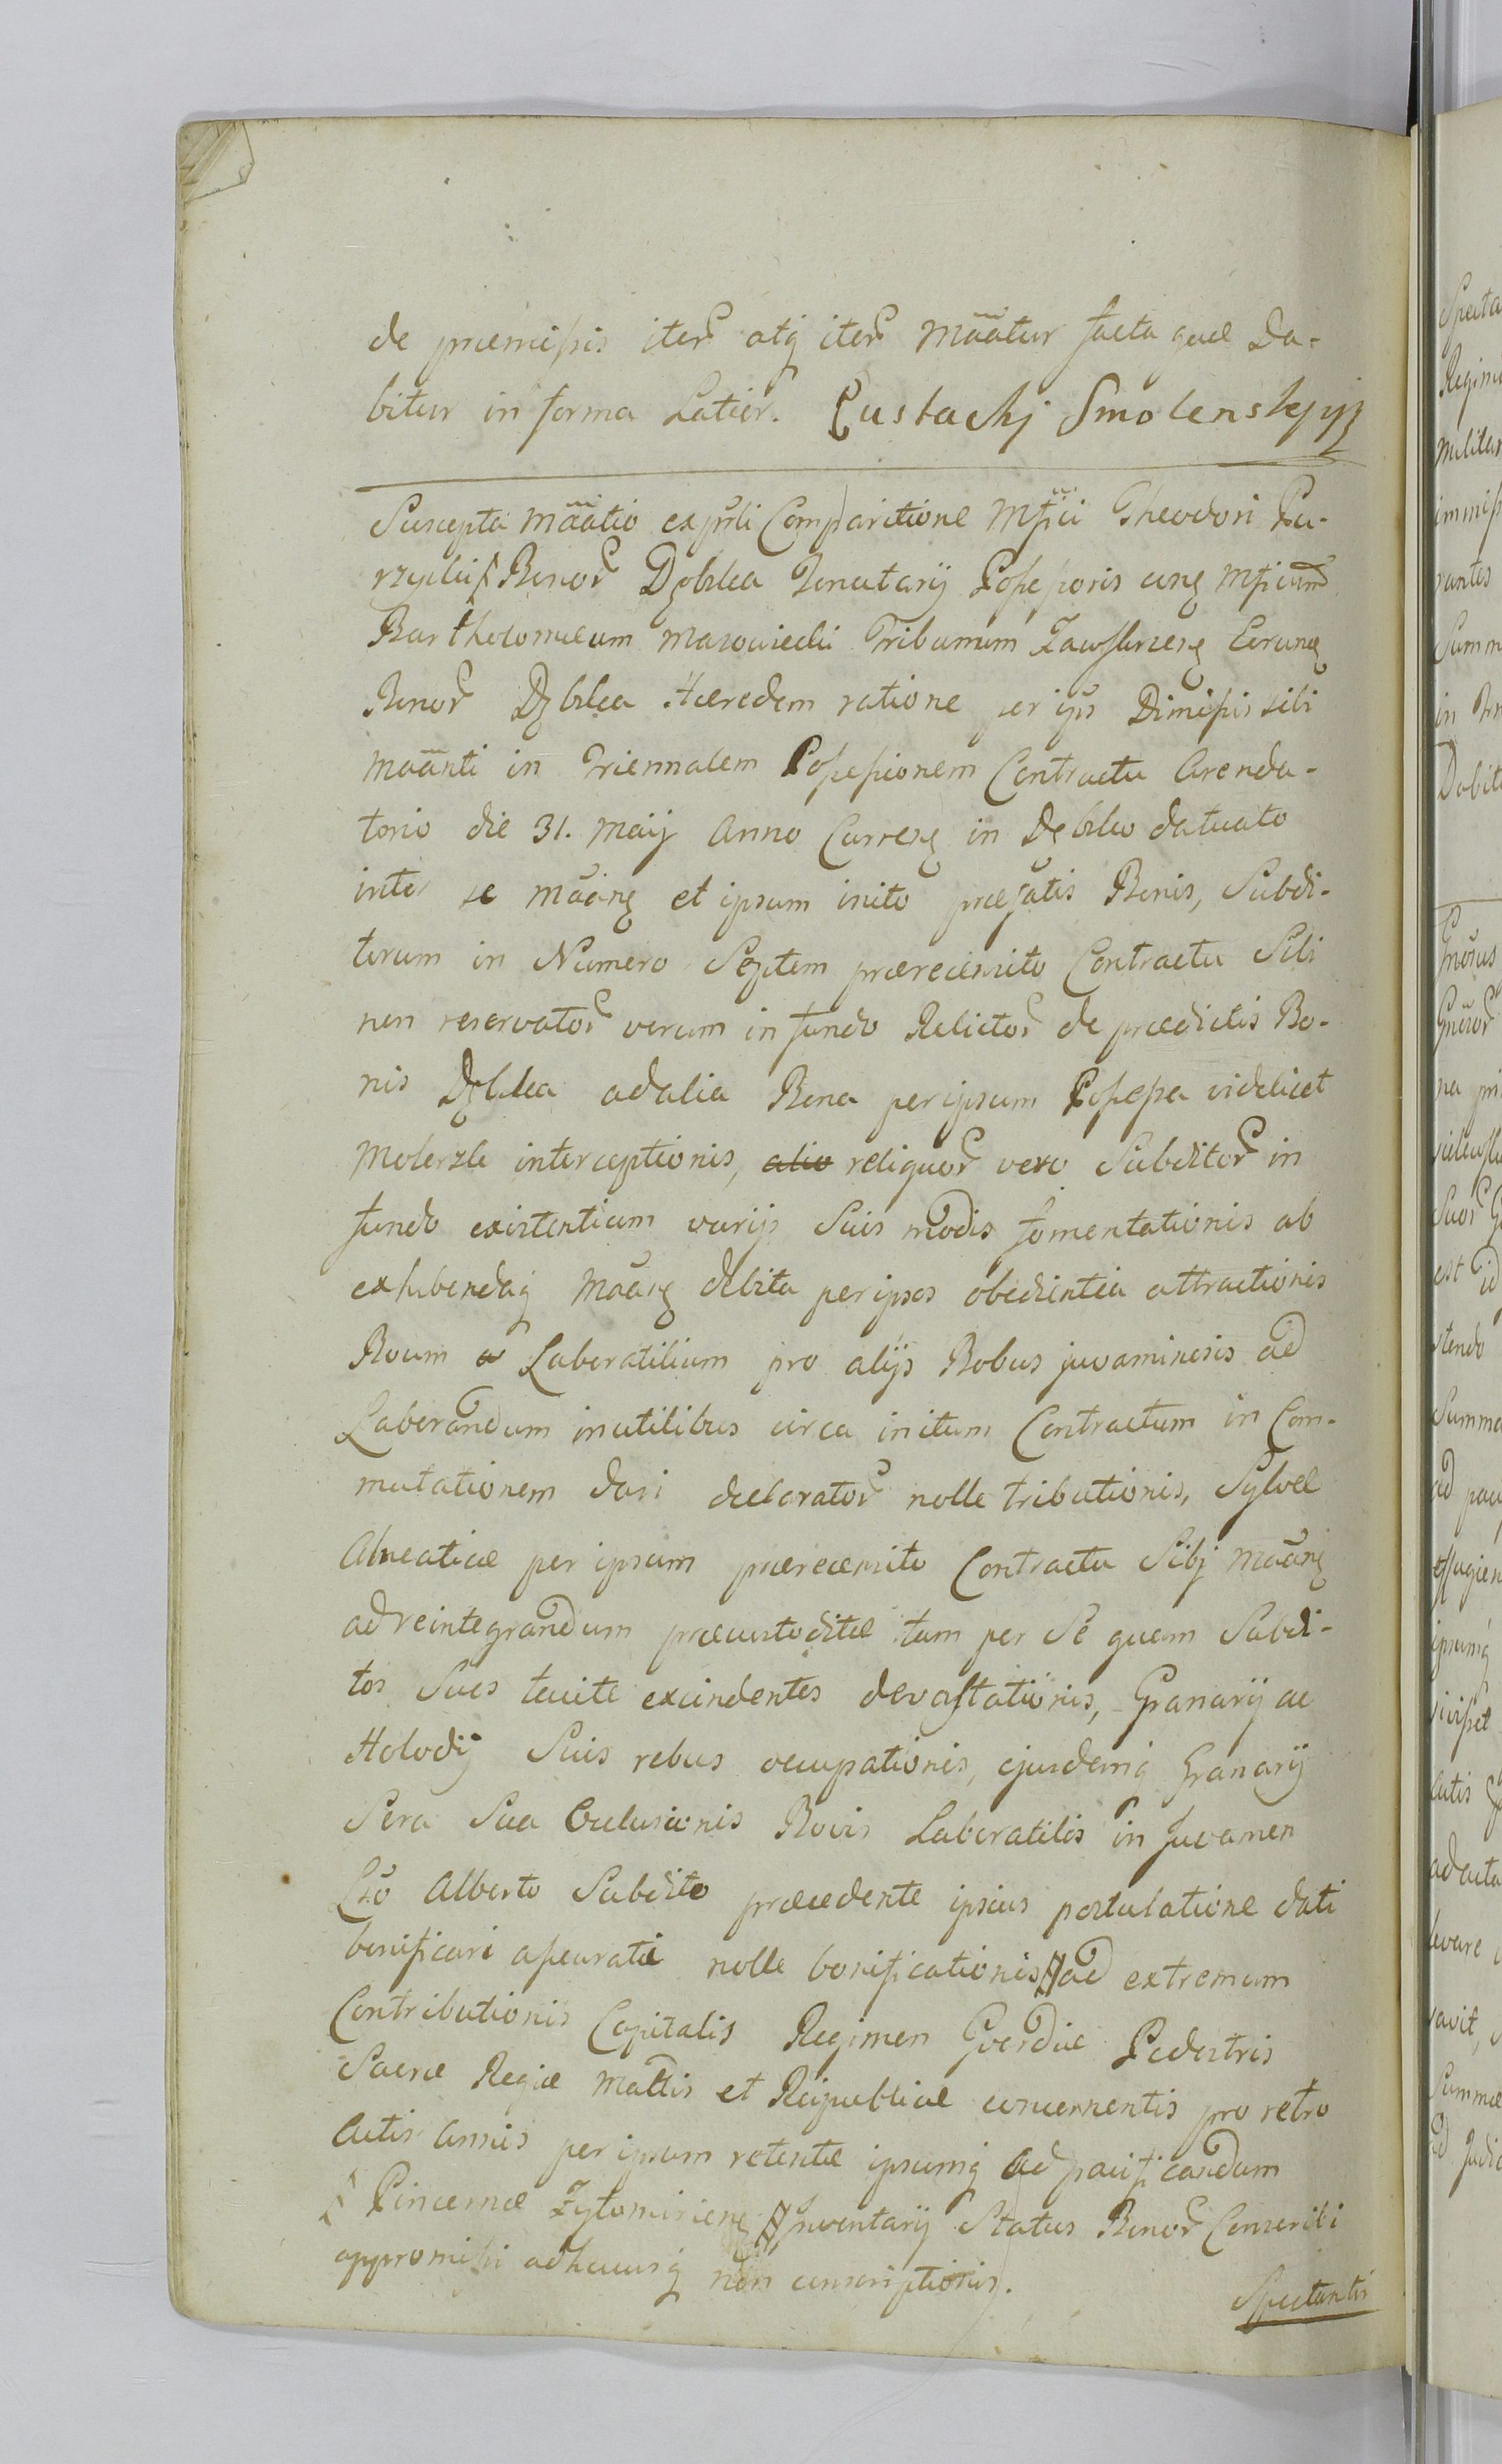 de præmissis iter̃ atq iter̃ mããtur facta quæ Da-
bitur in forma Latior. Eustachj Smolenskyɉ
Suscepta mããtio ex pñti Comparitione Mfici Theodori Pu-
rzycki Bonor̃ Dęblea Tenutarÿ Possessoris ctrą Mficum
Bartholomæum Mazowiecki Tribunum Zawskrzeng Eorung
Bonor̃ Dęblea Hæredem ratione per ipš Dimissis sibi
mãanti in triennalem Possessionem Contractu Arenda-
torio die 31. Maij Anno Curreng in Dęblew datuato
inter se mãang et ipsum inito præfatis Bonis, Subdi-
torum in Numero Septem prærecensito Contractu Sibi
non reservator̃ verum in fundo Relictor̃ de prædictis Bo-
nis Dęblea ad alia Bona per ipsum Possessa videlicet
interceptionis, alio reliquor̃ vero Subditor̃ in
fundo existentium varijs Suis modis fomentationis ab
exhibendaq mãang debita per ipsos obedientia attractionis
Boum a Laboratilium pro alijs Bobus juvaminis ad
Laborandum inutilibus circa initum Contractum in Com-
mutationem dari declarator̃ nolle tributionis, Sylvæ
Alneaticæ per ipsum prærecensito Contractu Sibj mãang
ad reintegrandum præcustoditæ tam per Se quam Subdi-
tos Suos tacite excindentes devastationis, Granarij ac
Holodij Suis rebus occupationis, ejusdemq Granarij
Sera Sua Occlusionis Bovis Laboratilis in Juvamen
Lso Alberto Subdito præcedente ipsius postulatione dati
bonificari assecurati nolle bonificationis // ad extremum
Contributionis Capitalis Regimen Gvardiæ Pedestris
Sacræ Regiæ Mattis et Reipublicæ concernentis pro retro
Actis Annis per ipsum retentæ ipsumq ad pacificandum
Pincernæ Zytomirieng // Inventarij Status Bonor̃ Conscribi
appromissi adhucusq non conscriptionis.
Spectantis